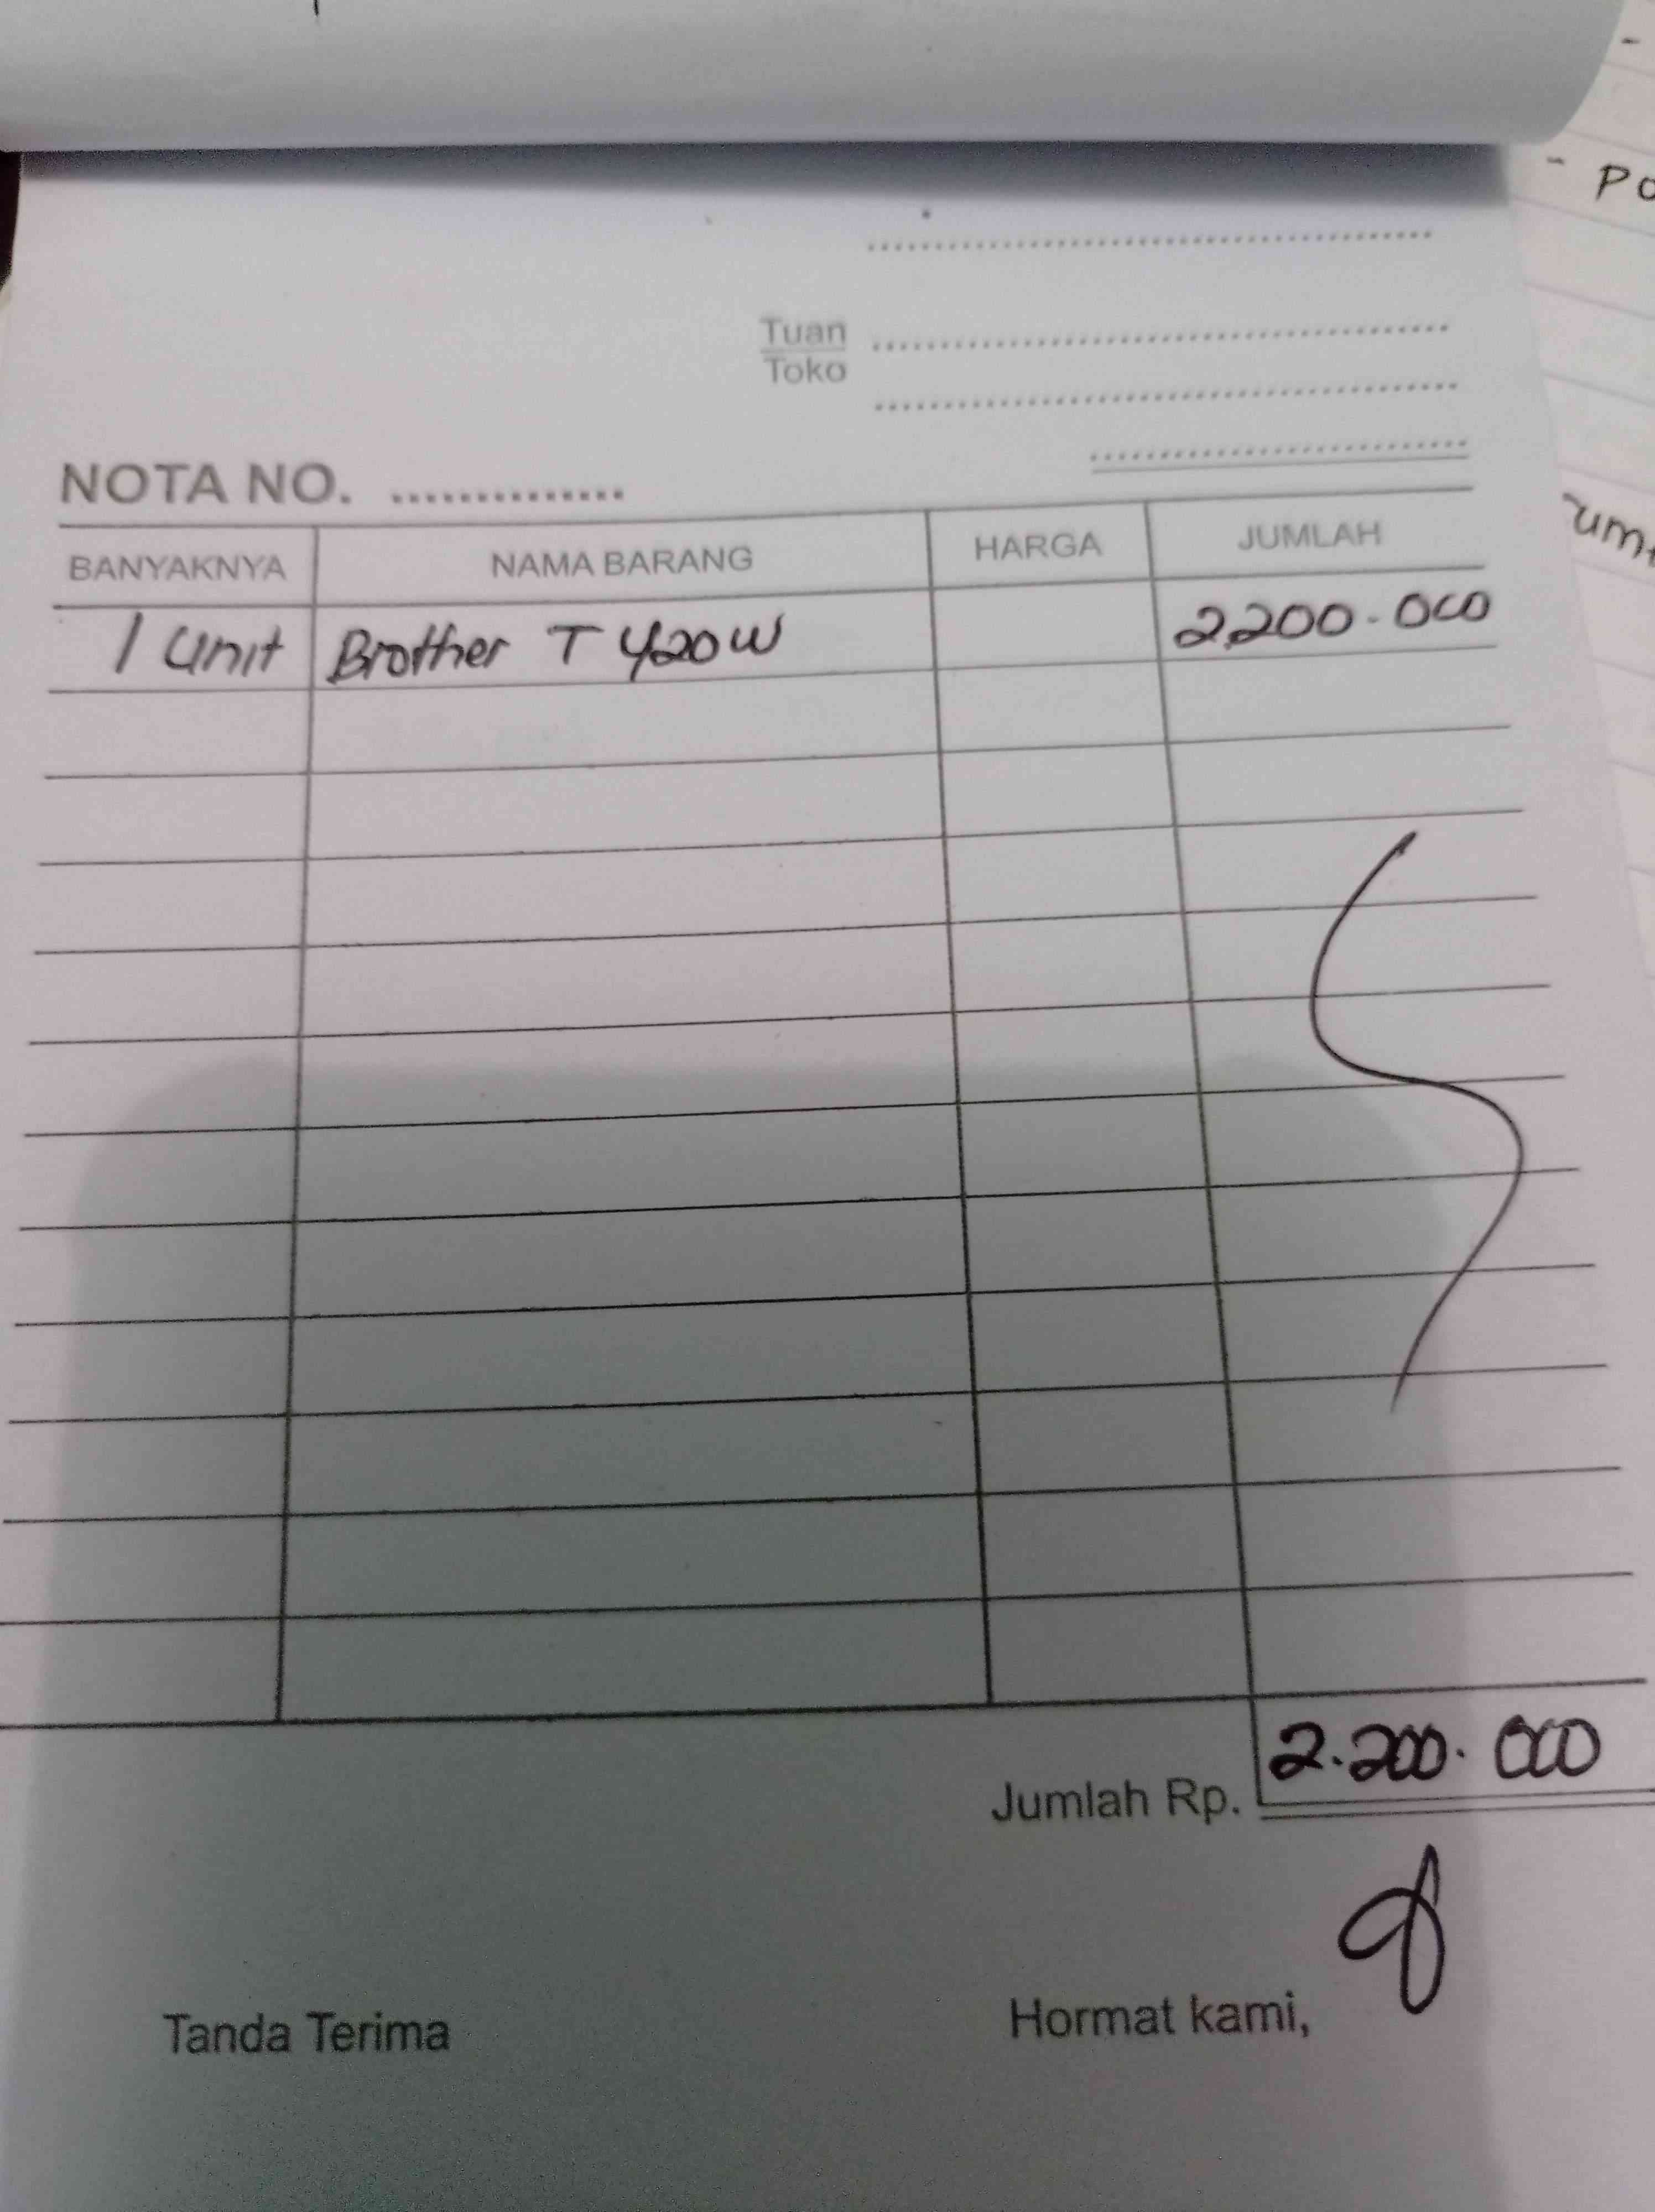 Tuan
Toko
NOTA NO. ..............
BANYAKNYA NAMA BARANG HARGA JUMLAH
1 Unit Brother T 420W 2.200.000
Jumlah Rp. 2.200.000
Tanda Terima Hormat kami,